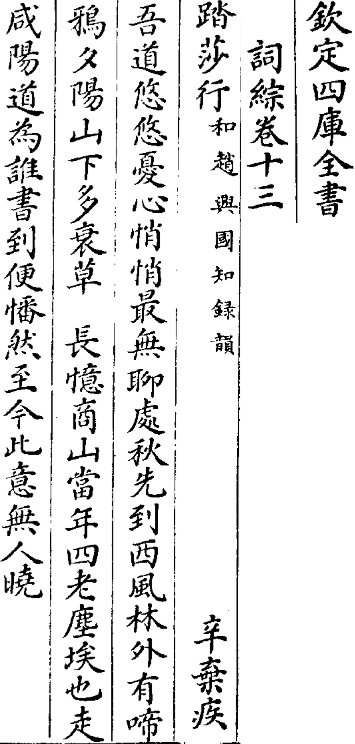 欽定四庫全書
詞綜卷十三
踏莎行和趙興國知録韻 辛棄疾
吾道悠悠憂心悄悄最無聊處秋先到西風林外有啼
鴉夕陽山下多衰草 長憶商山當年四老塵埃也走
咸陽道為誰書到便幡然至今此意無人曉